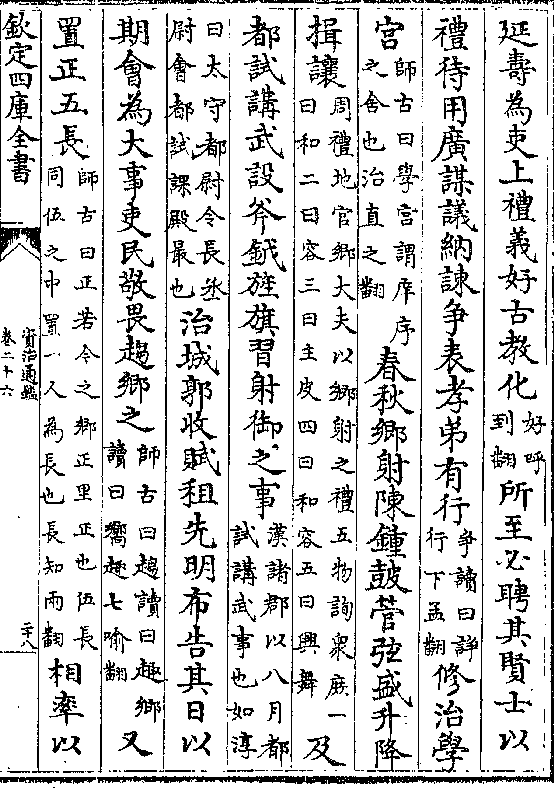 延壽為吏上禮義好古教化好呼到翻所至必聘其賢士以
禮待用廣謀議納諫争表孝弟有行争讀曰諍行下孟翻修治學
宮師古曰學宮謂庠序之舍也治直之翻春秋鄉射陳鍾鼓管弦盛升降
揖讓周禮地官鄉大夫以鄉射之禮五物詢衆庶一曰和二曰容三曰主皮四曰和容五曰興舞及
都試講武設斧鉞旌旗習射御之事漢諸郡以八月都試講武事也如淳
曰太守都尉令長丞尉會都試課殿最也治城郭收賦租先明布告其日以
期會為大事吏民敬畏趨鄉之師古曰趨讀曰趣鄉讀曰嚮趣七喻翻又
置正五長師古曰正若今之鄉正里正也伍長同伍之中置一人為長也長知兩翻相率以
欽定四庫全書
資治通鑑
卷二十六
二十八